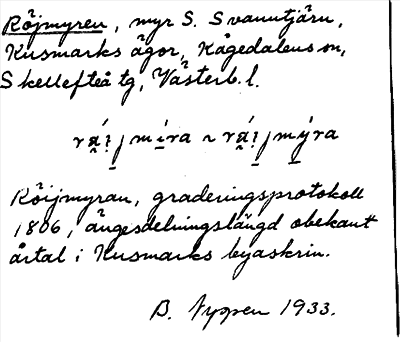 Röjmyren, myr S. Svanntjärn,
Kusmarks ägor, Kågedalens sn,
Skellefteå tg, Västerb. l.
Röijmyran, graderingsprotokoll
1806, ängesdelningslängd obekant
årtal i Kusmarks byaskrin.
B. 1933.